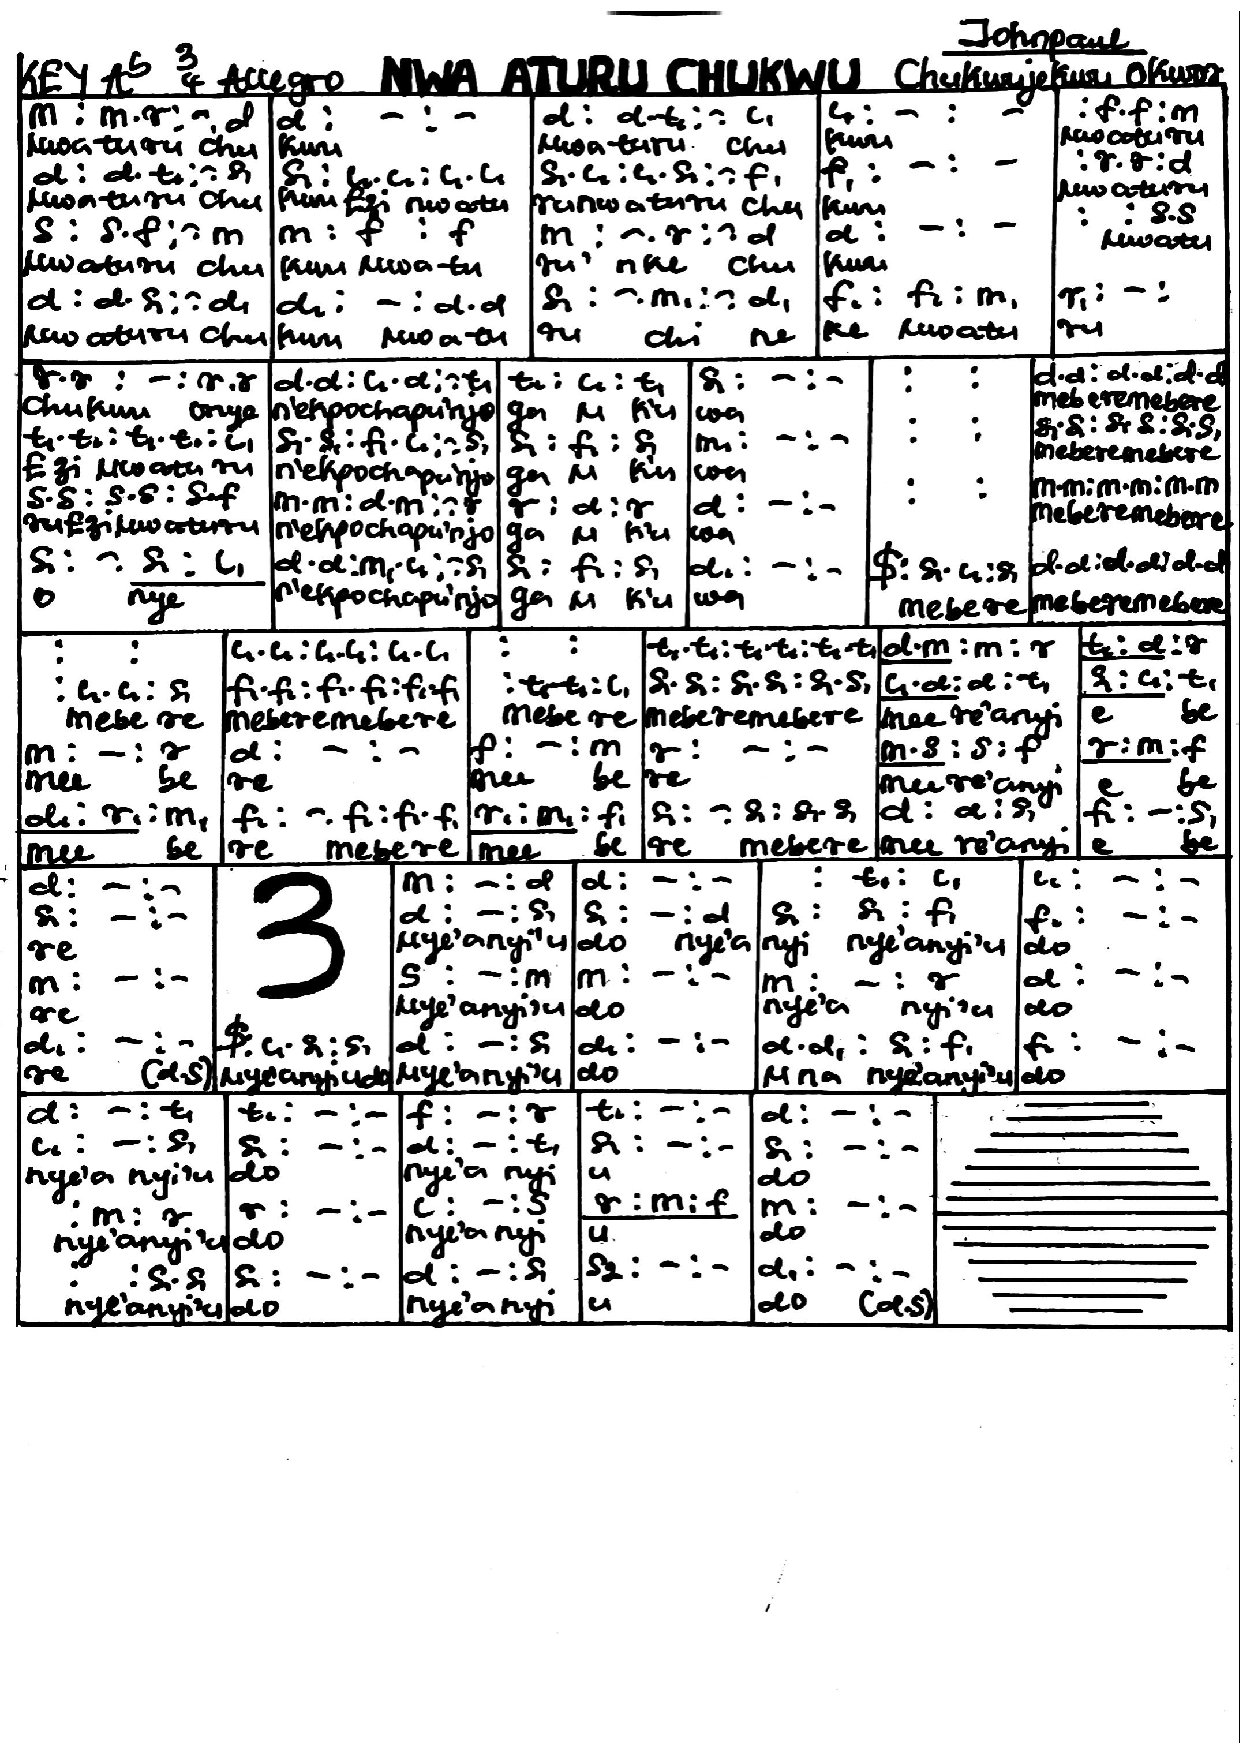 Johnpaul
KEY Ab 3/4 Allegro NWA ATURU CHUKWU Chukwujekwu Okwor
m : m.r : -, d | d : - : - | d : d.t₁ : - l₁ | l₁ : - : - | : f.f : m
Nwa-turu chu | kwu | Nwa-turu chu | kwu | Nwaturu
d : d.t₁ : - s₁ | s₁ : l₁.l₁ : l₁.l₁ | s₁.l₁ : l₁.s₁ : - f₁ | f₁ : - : - | : r.r : d
Nwa-turu chu | kwu Ezi nwatu | runwaturu chu | kwu | Nwaturu
s : s.f : - m | m : f : f | m : -.r : - d | d : - : - | : : s.s
Nwaturu chu | kwu Nwa-tu | ru' nke chu | kwu | Nwatu
d : d.s₁ : - d₁ | d₁ : - : d.d | s₁ : -.m₁ : - d₁ | f₁ : f₁ : m₁ | r₁ : - :
Nwaturu chu | kwu Nwa-tu | ru chi ne | ke Nwatu | ru
r.r : - : r.r | d.d : l₁.d : - t₁ | t₁ : l₁ : t₁ | s₁ : - : - | : : | d.d : d.d : d.d
chukwu onye | n'ekpochapu'njo | ga N ku | wa | meberemebere
t₁.t₁ : t₁.t₁ : l₁ | s₁.s₁ : f₁.l₁ : - s₁ | s₁ : f₁ : s₁ | m₁ : - : - | : : | s₁.s₁ : s₁.s₁ : s₁.s₁
Ezi Nwatu ru | n'ekpochapu'njo | ga N ku | wa | meberemebere
s.s : s.s : s.f | m.m : d.m : - r | r : d : r | d : - : - | : : | m.m : m.m : m.m
ruEziNwaturu | n'ekpochapu'njo | ga N ku | wa | meberemebere
s₁ : - s₁ : l₁ | d.d : m₁.l₁ : - s₁ | s₁ : f₁ : s₁ | d₁ : - : - | $ : s₁.l₁ : s₁ | d.d : d.d : d.d
o nye | n'ekpochapu'njo | ga N ku | wa | mebere | meberemebere
: : | l₁.l₁ : l₁.l₁ : l₁.l₁ | : : | t₁.t₁ : t₁.t₁ : t₁.t₁ | d.m : m : r | t₁ : d : r
: l₁.l₁ : s₁ | f₁.f₁ : f₁.f₁ : f₁.f₁ | : t₁.t₁ : l₁ | s₁.s₁ : s₁.s₁ : s₁.s₁ | l₁.d : d : t₁ | s₁ : l₁ : t₁
mebe re | meberemebere | mebe re | meberemebere | mee re'anyi | e be
m : - : r | d : - : - | f : - : m | r : - : - | m.s : s : f | r : m : f
mee be | re | mee be | re | mee re'anyi | e be
d₁ : r₁ : m₁ | f₁ : - f₁ : f₁.f₁ | r₁ : m₁ : f₁ | s₁ : - s₁ : s₁.s₁ | d : d : s₁ | f₁ : - : s₁
mee be | re mebere | mee be | re mebere | mee re'anyi | e be
d : - : - | 3 | m : - : d | d : - : - | : t₁ : l₁ | l₁ : - : -
s₁ : - : - | d : - : s₁ | s₁ : - : d | s₁ : s₁ : f₁ | f₁ : - : -
re | Nye'anyi'u | do nye'a | nyi nye'anyi'u | do
m : - : - | s : - : m | m : - : - | m : - : r | d : - : -
re | Nye'anyi'u | do | nye'a nyi'u | do
d₁ : - : - | $ : l₁.s₁ : s₁ | d : - : s₁ | d₁ : - : - | d.d₁ : s₁ : f₁ | f₁ : - : -
re (d.s) | Nye'anyiudo | Nye'anyi'u | do | N na nye'anyi'u | do
d : - : t₁ | t₁ : - : - | f : - : r | t₁ : - : - | d : - : -
l₁ : - : s₁ | s₁ : - : - | d : - : t₁ | s₁ : - : - | s₁ : - : -
nye'a nyi'u | do | nye'a nyi | u | do
: m : r | r : - : - | l : - : s | r : m : f | m : - : -
nye'anyi'u | do | nye'a nyi | u | do
: : s₁.s₁ | s₁ : - : - | d : - : s₁ | s₂ : - : - | d₁ : - : -
nye'anyi'u | do | nye'a nyi | u | do (d.s)